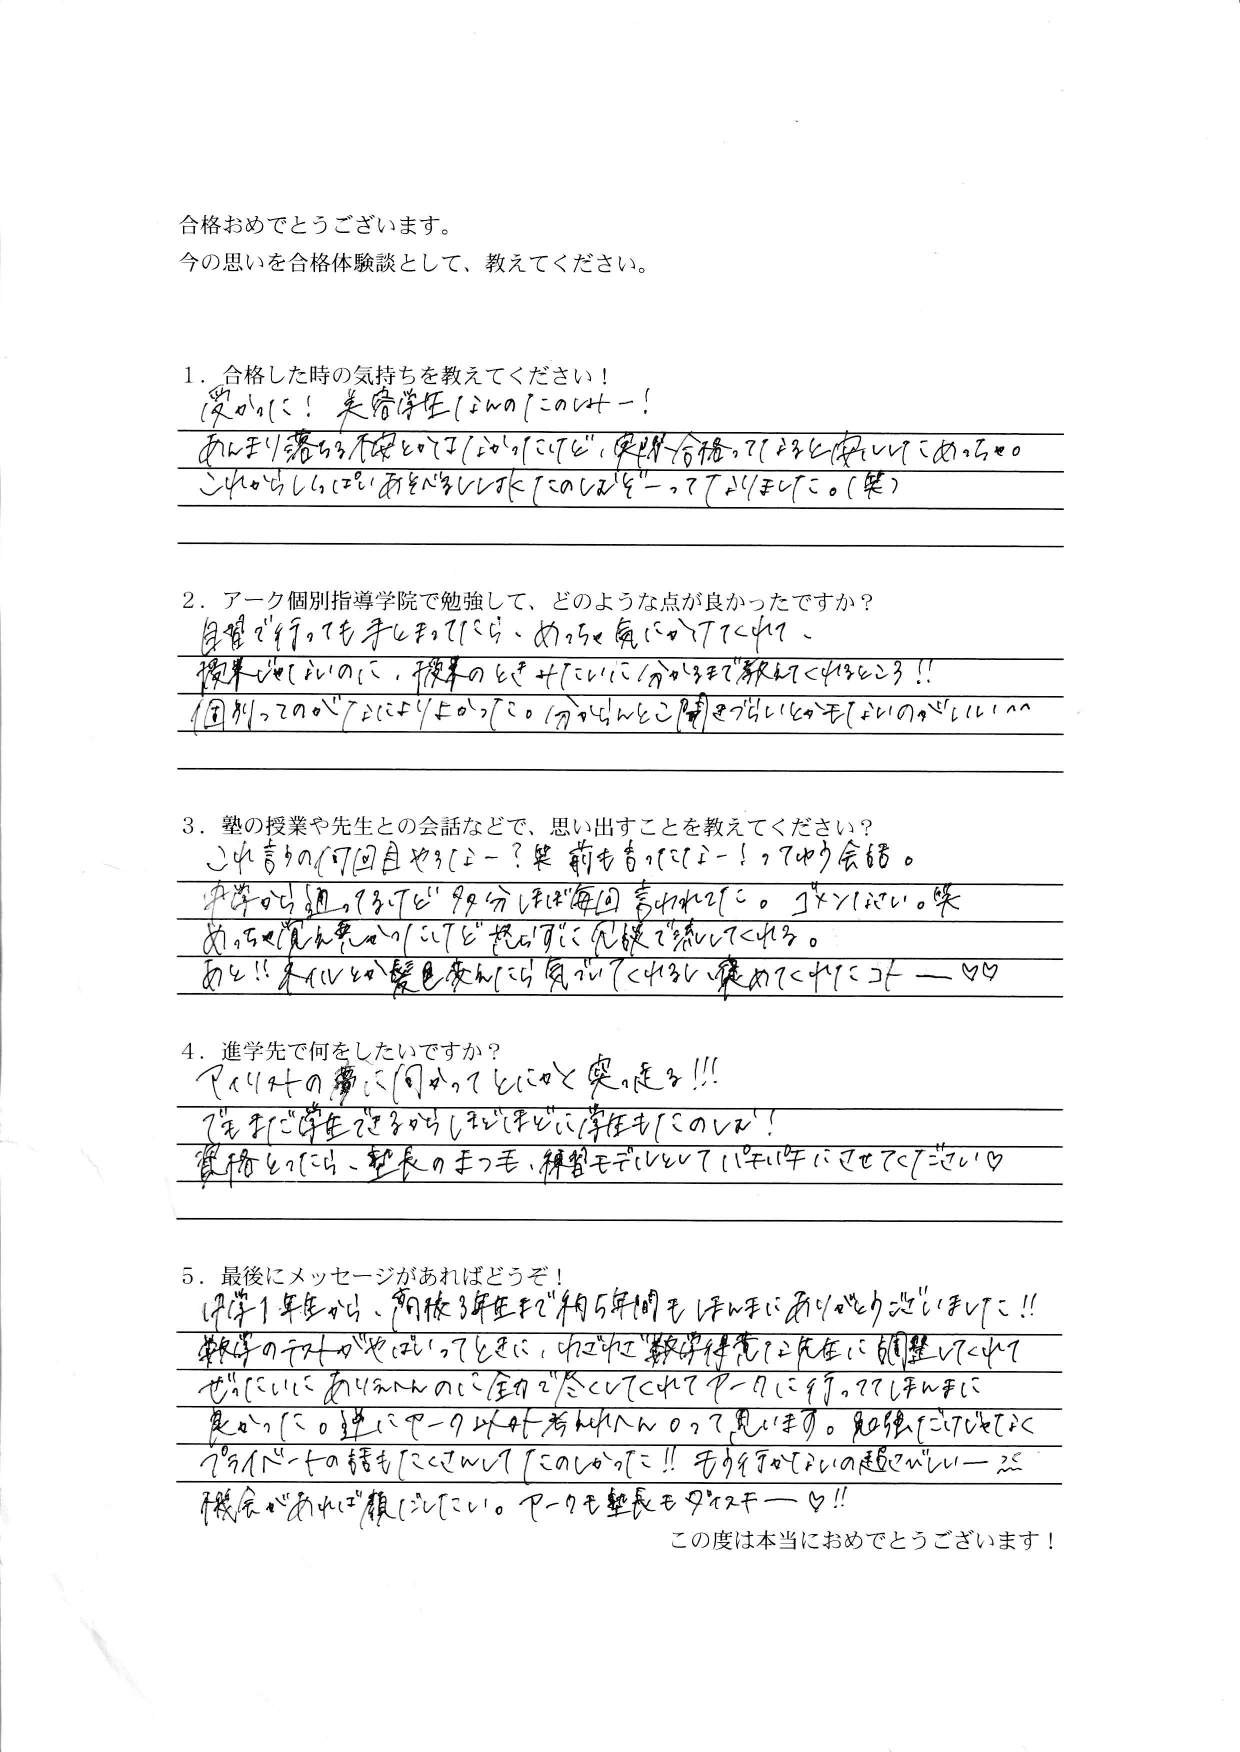 合格おめでとうございます。
今の思いを合格体験談として、教えてください。
1．合格した時の気持ちを教えてください！
受かった！ 美容学生なんのたのしみー！
あんまり落ちる不安とかはなかったけど、実際合格ってなると安心しためっちゃ。
これからいっぱいあそべるししぬほどたのしむぞーってなりました。(笑)
2．アーク個別指導学院で勉強して、どのような点が良かったですか？
自習で行っても手とまってたら、めっちゃ気にかけてくれて、
授業じゃないのに、授業のときみたいに分かるまで教えてくれるところ!!
個別ってのがなによりよかった。分からんとこ聞きづらいとかもないのがいい^^
3．塾の授業や先生との会話などで、思い出すことを教えてください？
これ言うの何回目やろなー？笑 前も言ったなー！ってゆう会話。
中学から通ってるけど多分ほぼ毎回言われてた。ゴメンなさい。笑
めっちゃ覚え悪かったけど怒らずに冗談で流してくれる。
あと!! ネイルとか髪色変えたら気づいてくれるし、褒めてくれたコトー♡♡
4．進学先で何をしたいですか？
アイリストの夢に向かってとにかく突っ走る!!!
でもまだ学生できるからほどほどに学生もたのしむ！
資格とったら、塾長のまつ毛、練習モデルとしてパチパチにさせてください♡
5．最後にメッセージがあればどうぞ！
中学1年生から、高校3年生まで約5年間もほんまにありがとうございました!!
数学のテストがやばいってときに、わざわざ数学得意な先生に調整してくれて
ぜったいにありえへんのに全力で尽くしてくれてアークに行っててほんまに
良かった。逆にアーク以外考えれへんって思います。勉強だけじゃなく
プライベートの話もたくさんしてたのしかった!! もう行かないの超さびしいー
機会があれば顔だしたい。アークも塾長もダイスキー♡!!
この度は本当におめでとうございます！